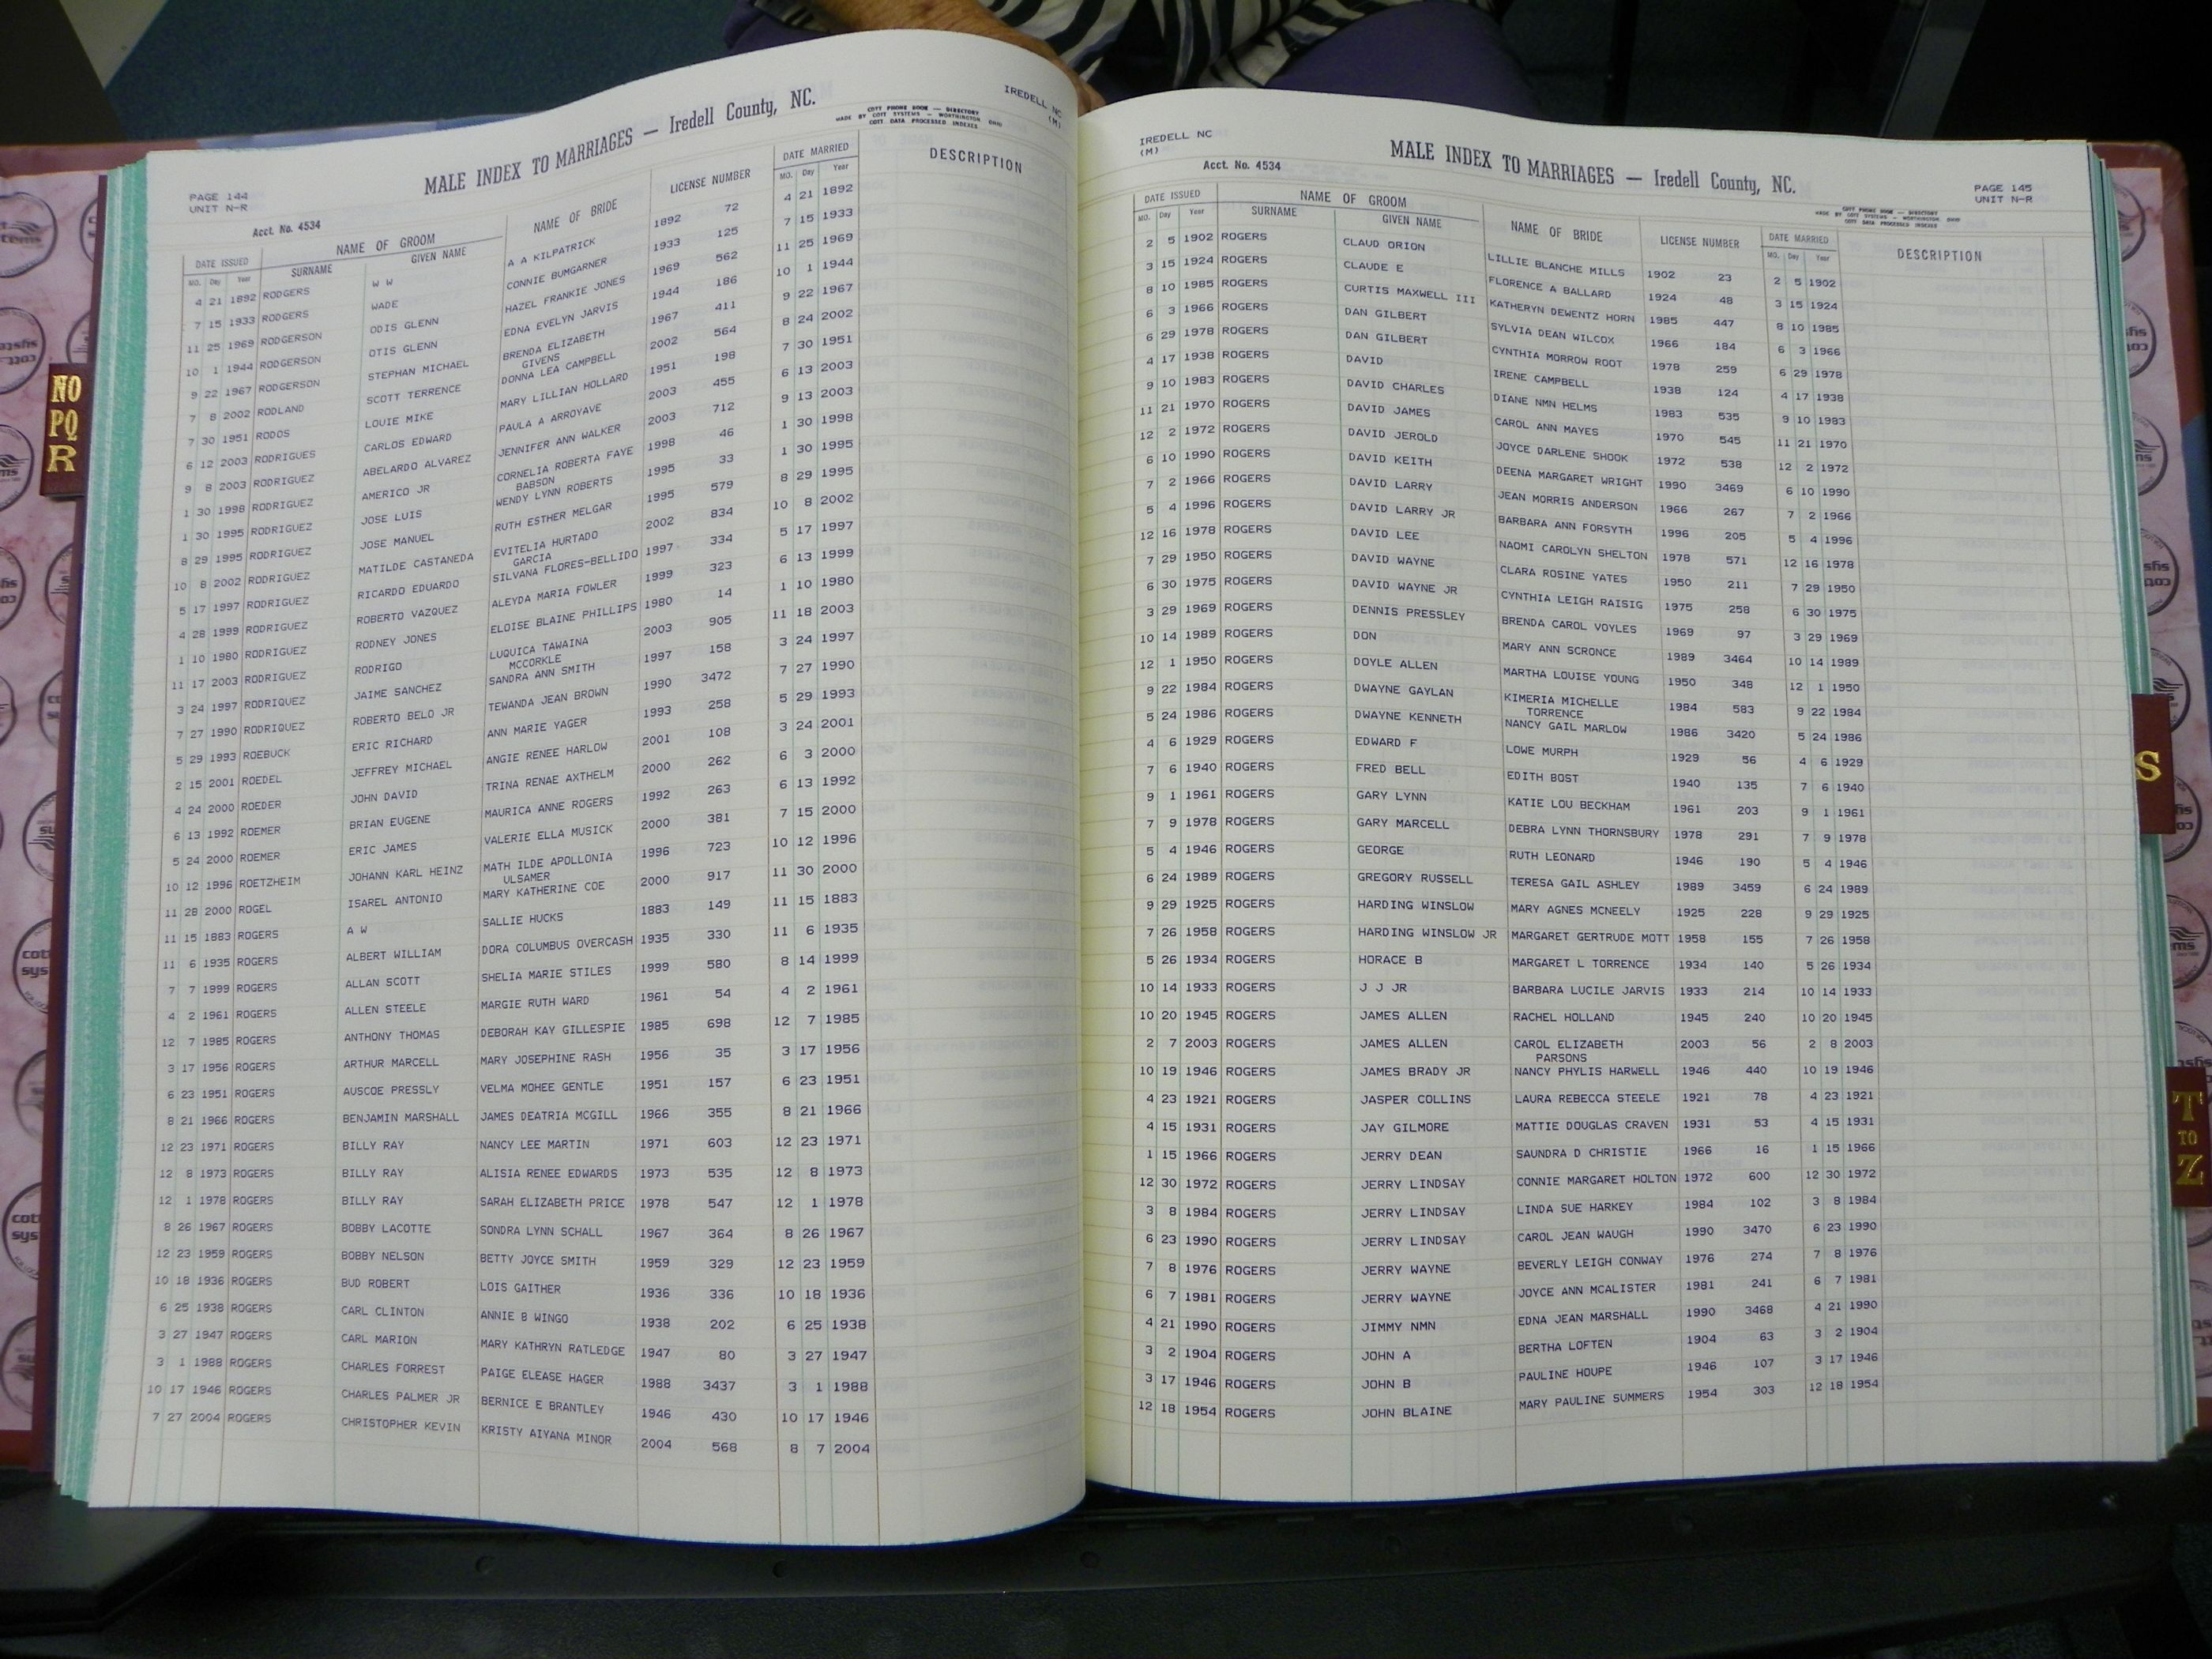 PAGE 144
UNIT N-R
MALE INDEX TO MARRIAGES — Iredell County, NC.
COTT PHONE BOOK — DIRECTORY
MADE BY COTT SYSTEMS — WORTHINGTON OHIO
COTT DATA PROCESSED INDEXES
IREDELL NC
(M)
Acct. No. 4534
DATE ISSUED NAME OF GROOM NAME OF BRIDE LICENSE NUMBER DATE MARRIED DESCRIPTION
MO. Day Year SURNAME GIVEN NAME MO. Day Year
4 21 1892 RODGERS W W A A KILPATRICK 1892 72 4 21 1892
7 15 1933 RODGERS WADE CONNIE BUMGARNER 1933 125 7 15 1933
11 25 1969 RODGERSON ODIS GLENN HAZEL FRANKIE JONES 1969 562 11 25 1969
10 1 1944 RODGERSON OTIS GLENN EDNA EVELYN JARVIS 1944 186 10 1 1944
9 22 1967 RODGERSON STEPHAN MICHAEL BRENDA ELIZABETH 1967 411 9 22 1967
GIVENS
7 8 2002 RODLAND SCOTT TERRENCE DONNA LEA CAMPBELL 2002 564 8 24 2002
7 30 1951 RODOS LOUIE MIKE MARY LILLIAN HOLLARD 1951 198 7 30 1951
6 12 2003 RODRIGUES CARLOS EDWARD PAULA A ARROYAVE 2003 455 6 13 2003
9 8 2003 RODRIGUEZ ABELARDO ALVAREZ JENNIFER ANN WALKER 2003 712 9 13 2003
1 30 1998 RODRIGUEZ AMERICO JR CORNELIA ROBERTA FAYE 1998 46 1 30 1998
BABSON
1 30 1995 RODRIGUEZ JOSE LUIS WENDY LYNN ROBERTS 1995 33 1 30 1995
8 29 1995 RODRIGUEZ JOSE MANUEL RUTH ESTHER MELGAR 1995 579 8 29 1995
10 8 2002 RODRIGUEZ MATILDE CASTANEDA EVITELIA HURTADO 2002 834 10 8 2002
GARCIA
5 17 1997 RODRIGUEZ RICARDO EDUARDO SILVANA FLORES-BELLIDO 1997 334 5 17 1997
4 28 1999 RODRIGUEZ ROBERTO VAZQUEZ ALEYDA MARIA FOWLER 1999 323 6 13 1999
1 10 1980 RODRIGUEZ RODNEY JONES ELOISE BLAINE PHILLIPS 1980 14 1 10 1980
11 17 2003 RODRIGUEZ RODRIGO LUQUICA TAWAINA 2003 905 11 18 2003
MCCORKLE
3 24 1997 RODRIQUEZ JAIME SANCHEZ SANDRA ANN SMITH 1997 158 3 24 1997
7 27 1990 RODRIQUEZ ROBERTO BELO JR TEWANDA JEAN BROWN 1990 3472 7 27 1990
5 29 1993 ROEBUCK ERIC RICHARD ANN MARIE YAGER 1993 258 5 29 1993
2 15 2001 ROEDEL JEFFREY MICHAEL ANGIE RENEE HARLOW 2001 108 3 24 2001
4 24 2000 ROEDER JOHN DAVID TRINA RENAE AXTHELM 2000 262 6 3 2000
6 13 1992 ROEMER BRIAN EUGENE MAURICA ANNE ROGERS 1992 263 6 13 1992
5 24 2000 ROEMER ERIC JAMES VALERIE ELLA MUSICK 2000 381 7 15 2000
10 12 1996 ROETZHEIM JOHANN KARL HEINZ MATH ILDE APOLLONIA 1996 723 10 12 1996
ULSAMER
11 28 2000 ROGEL ISAREL ANTONIO MARY KATHERINE COE 2000 917 11 30 2000
11 15 1883 ROGERS A W SALLIE HUCKS 1883 149 11 15 1883
11 6 1935 ROGERS ALBERT WILLIAM DORA COLUMBUS OVERCASH 1935 330 11 6 1935
7 7 1999 ROGERS ALLAN SCOTT SHELIA MARIE STILES 1999 580 8 14 1999
4 2 1961 ROGERS ALLEN STEELE MARGIE RUTH WARD 1961 54 4 2 1961
12 7 1985 ROGERS ANTHONY THOMAS DEBORAH KAY GILLESPIE 1985 698 12 7 1985
3 17 1956 ROGERS ARTHUR MARCELL MARY JOSEPHINE RASH 1956 35 3 17 1956
6 23 1951 ROGERS AUSCOE PRESSLY VELMA MOHEE GENTLE 1951 157 6 23 1951
8 21 1966 ROGERS BENJAMIN MARSHALL JAMES DEATRIA MCGILL 1966 355 8 21 1966
12 23 1971 ROGERS BILLY RAY NANCY LEE MARTIN 1971 603 12 23 1971
12 8 1973 ROGERS BILLY RAY ALISIA RENEE EDWARDS 1973 535 12 8 1973
12 1 1978 ROGERS BILLY RAY SARAH ELIZABETH PRICE 1978 547 12 1 1978
8 26 1967 ROGERS BOBBY LACOTTE SONDRA LYNN SCHALL 1967 364 8 26 1967
12 23 1959 ROGERS BOBBY NELSON BETTY JOYCE SMITH 1959 329 12 23 1959
10 18 1936 ROGERS BUD ROBERT LOIS GAITHER 1936 336 10 18 1936
6 25 1938 ROGERS CARL CLINTON ANNIE B WINGO 1938 202 6 25 1938
3 27 1947 ROGERS CARL MARION MARY KATHRYN RATLEDGE 1947 80 3 27 1947
3 1 1988 ROGERS CHARLES FORREST PAIGE ELEASE HAGER 1988 3437 3 1 1988
10 17 1946 ROGERS CHARLES PALMER JR BERNICE E BRANTLEY 1946 430 10 17 1946
7 27 2004 ROGERS CHRISTOPHER KEVIN KRISTY AIYANA MINOR 2004 568 8 7 2004
IREDELL NC
(M)
Acct. No. 4534
MALE INDEX TO MARRIAGES — Iredell County, NC.
COTT PHONE BOOK — DIRECTORY
MADE BY COTT SYSTEMS — WORTHINGTON OHIO
COTT DATA PROCESSED INDEXES
PAGE 145
UNIT N-R
DATE ISSUED NAME OF GROOM NAME OF BRIDE LICENSE NUMBER DATE MARRIED DESCRIPTION
MO. Day Year SURNAME GIVEN NAME MO. Day Year
2 5 1902 ROGERS CLAUD ORION LILLIE BLANCHE MILLS 1902 23 2 5 1902
3 15 1924 ROGERS CLAUDE E FLORENCE A BALLARD 1924 48 3 15 1924
8 10 1985 ROGERS CURTIS MAXWELL III KATHERYN DEWENTZ HORN 1985 447 8 10 1985
6 3 1966 ROGERS DAN GILBERT SYLVIA DEAN WILCOX 1966 184 6 3 1966
6 29 1978 ROGERS DAN GILBERT CYNTHIA MORROW ROOT 1978 259 6 29 1978
4 17 1938 ROGERS DAVID IRENE CAMPBELL 1938 124 4 17 1938
9 10 1983 ROGERS DAVID CHARLES DIANE NMN HELMS 1983 535 9 10 1983
11 21 1970 ROGERS DAVID JAMES CAROL ANN MAYES 1970 545 11 21 1970
12 2 1972 ROGERS DAVID JEROLD JOYCE DARLENE SHOOK 1972 538 12 2 1972
6 10 1990 ROGERS DAVID KEITH DEENA MARGARET WRIGHT 1990 3469 6 10 1990
7 2 1966 ROGERS DAVID LARRY JEAN MORRIS ANDERSON 1966 267 7 2 1966
5 4 1996 ROGERS DAVID LARRY JR BARBARA ANN FORSYTH 1996 205 5 4 1996
12 16 1978 ROGERS DAVID LEE NAOMI CAROLYN SHELTON 1978 571 12 16 1978
7 29 1950 ROGERS DAVID WAYNE CLARA ROSINE YATES 1950 211 7 29 1950
6 30 1975 ROGERS DAVID WAYNE JR CYNTHIA LEIGH RAISIG 1975 258 6 30 1975
3 29 1969 ROGERS DENNIS PRESSLEY BRENDA CAROL VOYLES 1969 97 3 29 1969
10 14 1989 ROGERS DON MARY ANN SCRONCE 1989 3464 10 14 1989
12 1 1950 ROGERS DOYLE ALLEN MARTHA LOUISE YOUNG 1950 348 12 1 1950
9 22 1984 ROGERS DWAYNE GAYLAN KIMERIA MICHELLE 1984 583 9 22 1984
TORRENCE
5 24 1986 ROGERS DWAYNE KENNETH NANCY GAIL MARLOW 1986 3420 5 24 1986
4 6 1929 ROGERS EDWARD F LOWE MURPH 1929 56 4 6 1929
7 6 1940 ROGERS FRED BELL EDITH BOST 1940 135 7 6 1940
9 1 1961 ROGERS GARY LYNN KATIE LOU BECKHAM 1961 203 9 1 1961
7 9 1978 ROGERS GARY MARCELL DEBRA LYNN THORNSBURY 1978 291 7 9 1978
5 4 1946 ROGERS GEORGE RUTH LEONARD 1946 190 5 4 1946
6 24 1989 ROGERS GREGORY RUSSELL TERESA GAIL ASHLEY 1989 3459 6 24 1989
9 29 1925 ROGERS HARDING WINSLOW MARY AGNES MCNEELY 1925 228 9 29 1925
7 26 1958 ROGERS HARDING WINSLOW JR MARGARET GERTRUDE MOTT 1958 155 7 26 1958
5 26 1934 ROGERS HORACE B MARGARET L TORRENCE 1934 140 5 26 1934
10 14 1933 ROGERS J J JR BARBARA LUCILE JARVIS 1933 214 10 14 1933
10 20 1945 ROGERS JAMES ALLEN RACHEL HOLLAND 1945 240 10 20 1945
2 7 2003 ROGERS JAMES ALLEN CAROL ELIZABETH 2003 56 2 8 2003
PARSONS
10 19 1946 ROGERS JAMES BRADY JR NANCY PHYLIS HARWELL 1946 440 10 19 1946
4 23 1921 ROGERS JASPER COLLINS LAURA REBECCA STEELE 1921 78 4 23 1921
4 15 1931 ROGERS JAY GILMORE MATTIE DOUGLAS CRAVEN 1931 53 4 15 1931
1 15 1966 ROGERS JERRY DEAN SAUNDRA D CHRISTIE 1966 16 1 15 1966
12 30 1972 ROGERS JERRY LINDSAY CONNIE MARGARET HOLTON 1972 600 12 30 1972
3 8 1984 ROGERS JERRY LINDSAY LINDA SUE HARKEY 1984 102 3 8 1984
6 23 1990 ROGERS JERRY LINDSAY CAROL JEAN WAUGH 1990 3470 6 23 1990
7 8 1976 ROGERS JERRY WAYNE BEVERLY LEIGH CONWAY 1976 274 7 8 1976
6 7 1981 ROGERS JERRY WAYNE JOYCE ANN MCALISTER 1981 241 6 7 1981
4 21 1990 ROGERS JIMMY NMN EDNA JEAN MARSHALL 1990 3468 4 21 1990
3 2 1904 ROGERS JOHN A BERTHA LOFTEN 1904 63 3 2 1904
3 17 1946 ROGERS JOHN B PAULINE HOUPE 1946 107 3 17 1946
12 18 1954 ROGERS JOHN BLAINE MARY PAULINE SUMMERS 1954 303 12 18 1954
NO
PQ
R
S
T
TO
Z